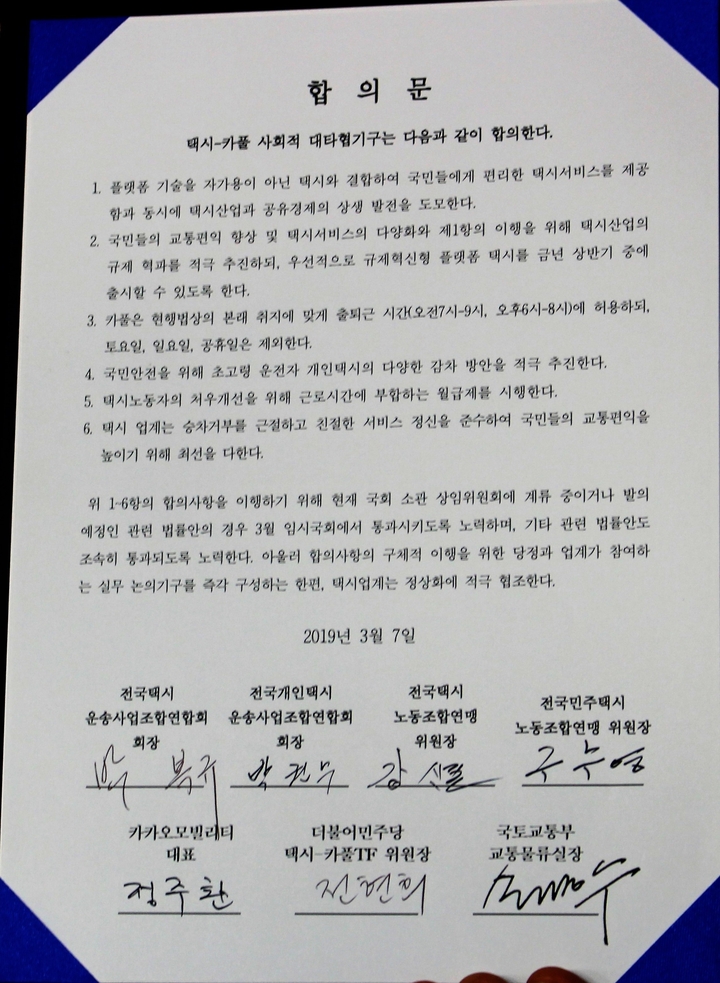 합 의 문
택시-카풀 사회적 대타협기구는 다음과 같이 합의한다.
1. 플랫폼 기술을 자가용이 아닌 택시와 결합하여 국민들에게 편리한 택시서비스를 제공
함과 동시에 택시산업과 공유경제의 상생 발전을 도모한다.
2. 국민들의 교통편익 향상 및 택시서비스의 다양화와 제1항의 이행을 위해 택시산업의
규제 혁파를 적극 추진하되, 우선적으로 규제혁신형 플랫폼 택시를 금년 상반기 중에
출시할 수 있도록 한다.
3. 카풀은 현행법상의 본래 취지에 맞게 출퇴근 시간(오전7시-9시, 오후6시-8시)에 허용하되,
토요일, 일요일, 공휴일은 제외한다.
4. 국민안전을 위해 초고령 운전자 개인택시의 다양한 감차 방안을 적극 추진한다.
5. 택시노동자의 처우개선을 위해 근로시간에 부합하는 월급제를 시행한다.
6. 택시 업계는 승차거부를 근절하고 친절한 서비스 정신을 준수하여 국민들의 교통편익을
높이기 위해 최선을 다한다.
위 1-6항의 합의사항을 이행하기 위해 현재 국회 소관 상임위원회에 계류 중이거나 발의
예정인 관련 법률안의 경우 3월 임시국회에서 통과시키도록 노력하며, 기타 관련 법률안도
조속히 통과되도록 노력한다. 아울러 합의사항의 구체적 이행을 위한 당정과 업계가 참여하
는 실무 논의기구를 즉각 구성하는 한편, 택시업계는 정상화에 적극 협조한다.
2019년 3월 7일
전국택시 전국개인택시 전국택시 전국민주택시
운송사업조합연합회 운송사업조합연합회 노동조합연맹 노동조합연맹 위원장
회장 회장 위원장
박 복규 박권수 강신표 구수영
카카오모빌리티 더불어민주당 국토교통부
대표 택시-카풀TF 위원장 교통물류실장
정주환 전현희